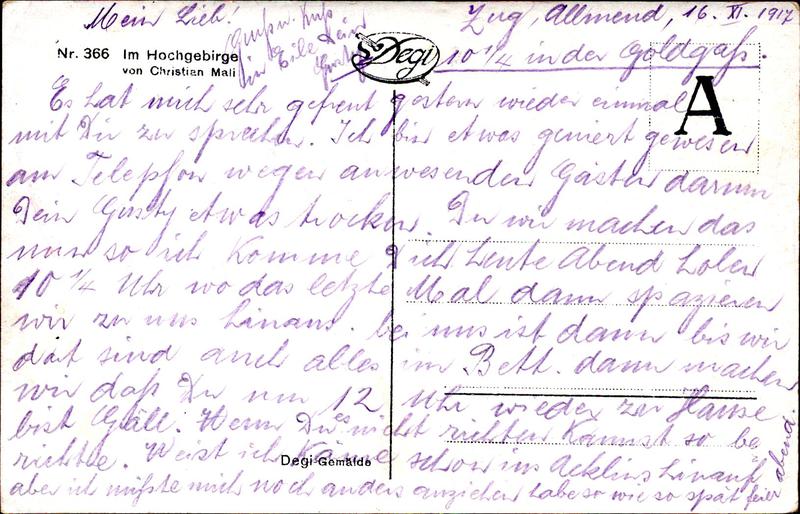 Mein Lieb!
Zug, Allmend, 16. XI. 1917
10 1/4 in der Goldgaß.
Gruß u. Kuß
in Eile Dein
Gusty
Nr. 366 Im Hochgebirge
von Christian Mali
Degi
A
Es hat mich sehr gefreut gestern wieder einmal
mit Dir zu sprechen. Ich bin etwas geniert gewesen
am Telephon wegen anwesenden Gästen darum
Dein Gusty etwas trocken. Du wir machen das
nun so ich komme Dich heute Abend holen
10 1/4 Uhr wo das letzte Mal dann spazieren
wir zu uns hinaus. bei uns ist dann bis wir
dát sind auch alles im Bett. dann machen
wir daß Du um 12 Uhr wieder zu Hause
bist Gäll. Wenn Du es nicht richten kannst so be
richte. Weist ich käme schon ins hinauf
aber ich müßte mich noch anders anziehen habe so wie so spät feier
abend.
Degi-Gemälde